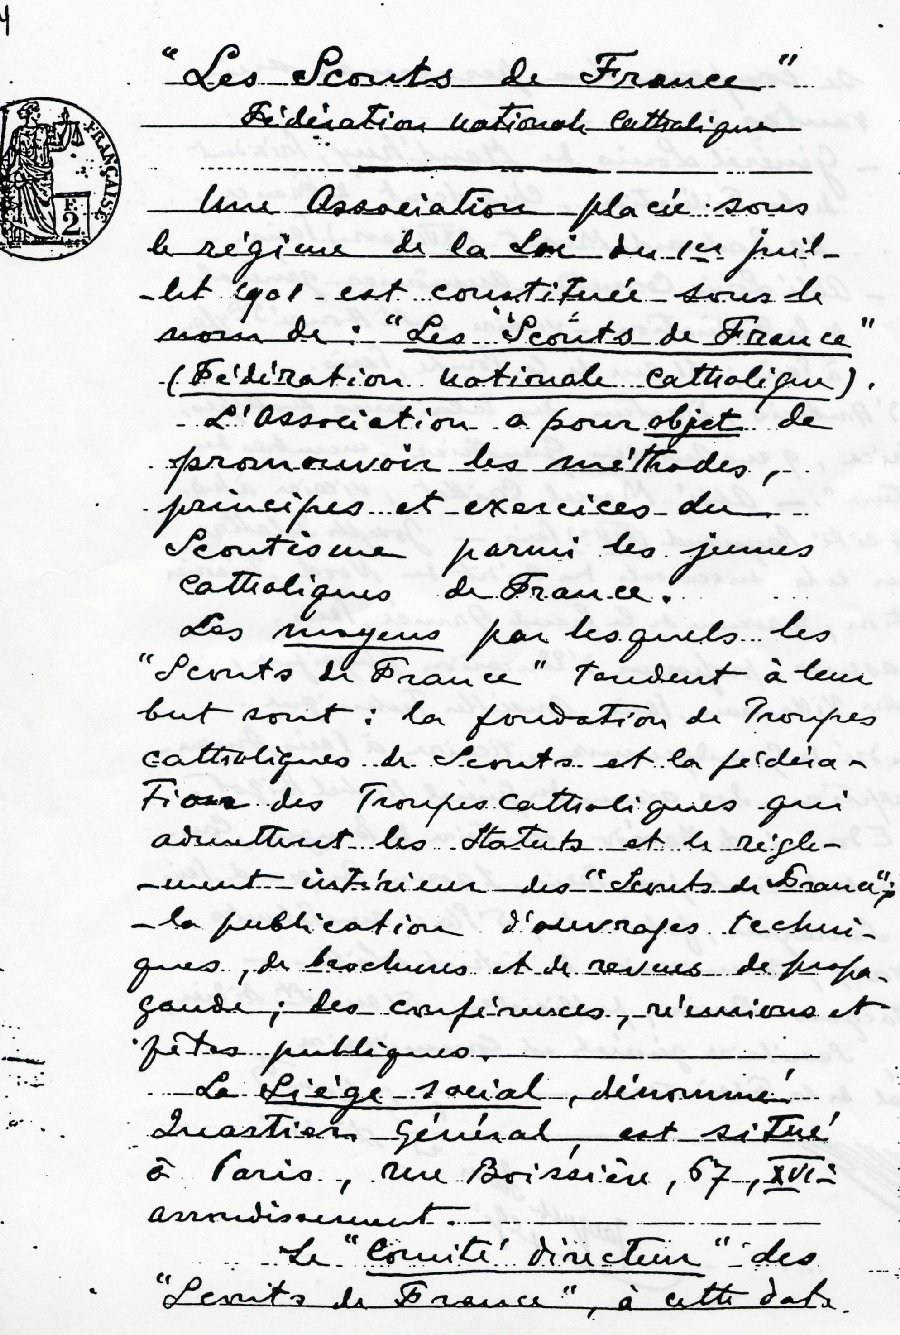 "Les Scouts de France"
Fédération nationale Catholique
FRANÇAISE
2
Une Association placée sous
le régime de la Loi du 1er juil-
-let 1901 est constituée sous le
nom de : "Les Scouts de France"
(Fédération nationale catholique).
L'Association a pour objet de
promouvoir les méthodes,
principes et exercices du
Scoutisme parmi les jeunes
catholiques de France.
Les moyens par lesquels les
"Scouts de France" tendent à leur
but sont : la fondation de Troupes
catholiques de Scouts et la fédéra-
tion des Troupes catholiques qui
admettent les Statuts et le règle-
-ment intérieur des "Scouts de France";
-la publication d'ouvrages techni-
ques, de brochures et de revues de propa-
gande ; des conférences, réunions et
fêtes publiques.
Le Siège social, dénommé
Quartier Général, est situé
à Paris, rue Boissière, 67, XVIe
arrondissement.
Le "Comité directeur" des
"Scouts de France", à cette date